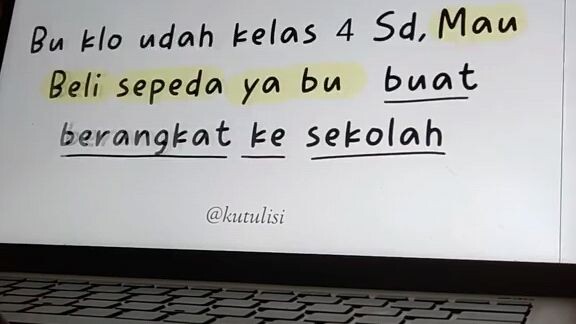 Bu klo udah kelas 4 Sd, Mau
Beli sepeda ya bu buat
berangkat ke sekolah
@kutulisi